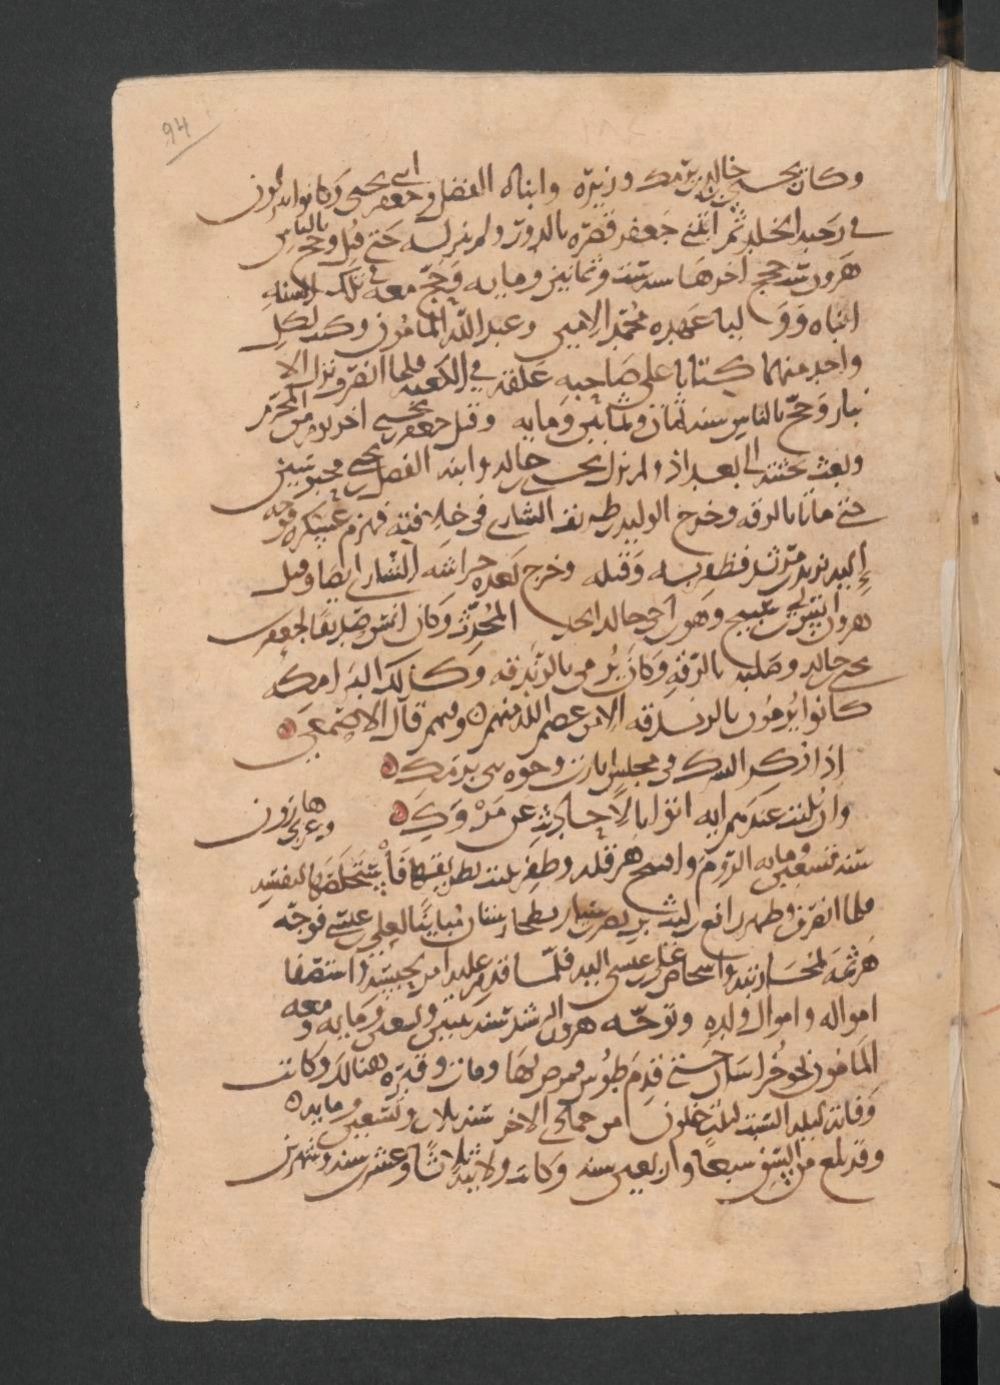 94
وكان يحيى بن خالد بن برمك وزيره وابناه الفضل وجعفر ابني يحيى وكانوا ينزلون
في رحبة الخلد ثم ابتنى جعفر قصره بالدور ولم ينزله حتى قتل وحج بالناس
هرون ست حجج اخرها سنة ست وثمانين وماية وحج معه في تلك السنة
ابناه ووليا عهده محمد الامين وعبد الله المامون وكتب لكل
واحد منهما كتابا على صاحبه علقه في الكعبة فلما انصرف نزل الا
نبار وحج بالناس سنة ثمان وثمانين وماية وقتل جعفر بن يحيى اخر يوم من المحرم
وبعث بجثته الى بغداد ولم يزل يحيى بن خالد وابنه الفضل بن يحيى محبوسين
حتى ماتا بالرقة وخرج الوليد بن طريف الشاري في خلافته فهزم عسكره فوجه
إليه يزيد بن مزيد فظفر به وقتله وخرج بعده خراشة الشاري ايضا وقتل
هرون انس بن ابي شيخ وهو ابن اخي خالد المحدث وكان انس صديقا لجعفر بن
يحيى بن خالد وصلبه بالرقة وكان يرمى بالزندقة وكذلك البرامكة
كانوا يرمون بالزندقة الا من عصم الله منهم وفيهم قال الاصمعي
إذا ذكر الشرك في مجلس انارت وجوه بني برمك
وان تليت عندهم ايه اتوا بالاحاديث عن مزدك
وغزا هارون
سنة تسعين وماية الروم وافتتح هرقلة وظفر ببنت بطريقها فاستخلصها لنفسه
فلما انصرف وظهر رافع بن ليث بن نصر بن سيار بطخارستان مباينا لعلي بن عيسى فوجه
هرثمة لمحاربته واشخاص علي بن عيسى اليه فلما قدم عليه امر بحبسه واستصفا
امواله واموال ولده وتوجه هرون الرشيد سنة اثنتين وتسعين وماية ومعه
المامون نحو خراسان حتى قدم طوس فمرض بها ومات وقبره هنالك وكانت
وفاته ليلة السبت لثلث خلون من جمادى الاخر سنة ثلاث وتسعين وماية
وقد بلغ من السن سبعا واربعين سنة وكانت ولايته ثلاثا وعشرين سنة وشهرين